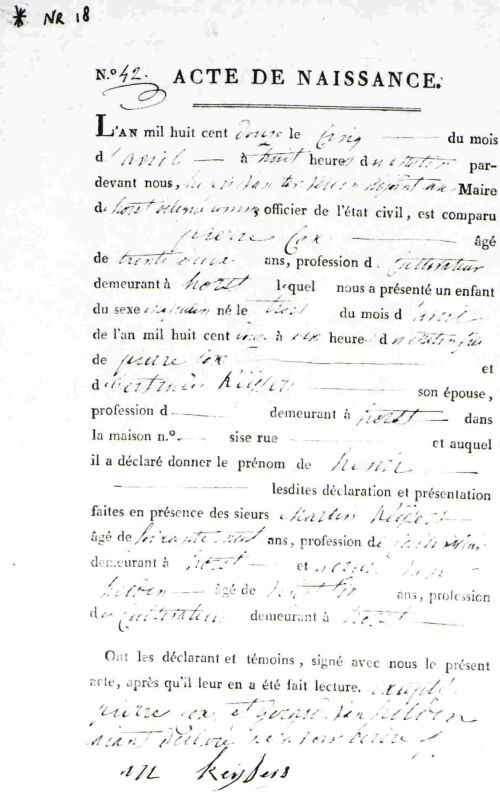 * NR 18
N.º 42. ACTE DE NAISSANCE.
L'AN mil huit cent douze le cinq du mois
d'avril à huit heures du matin par-
devant nous, adjoint au Maire
de horst officier de l'état civil, est comparu
pierre Cox âgé
de trente ans, profession de Cultivateur
demeurant à horst lequel nous a présenté un enfant
du sexe masculin né le trois du mois d'avril
de l'an mil huit cent à six heures du matin fils
de pierre Cox et
d Keijsers son épouse,
profession d demeurant à horst dans
la maison n.º sise rue et auquel
il a déclaré donner le prénom de
lesdites déclaration et présentation
faites en présence des sieurs Martin Keijsers
âgé de soixante neuf ans, profession de
demeurant à horst et
âgé de ans, profession
de Cultivateur demeurant à horst
Ont les déclarant et témoins, signé avec nous le présent
acte, après qu'il leur en a été fait lecture. excepté
pierre Cox et Gerard van
aiant déclaré ne savoir écrire
M Keijsers